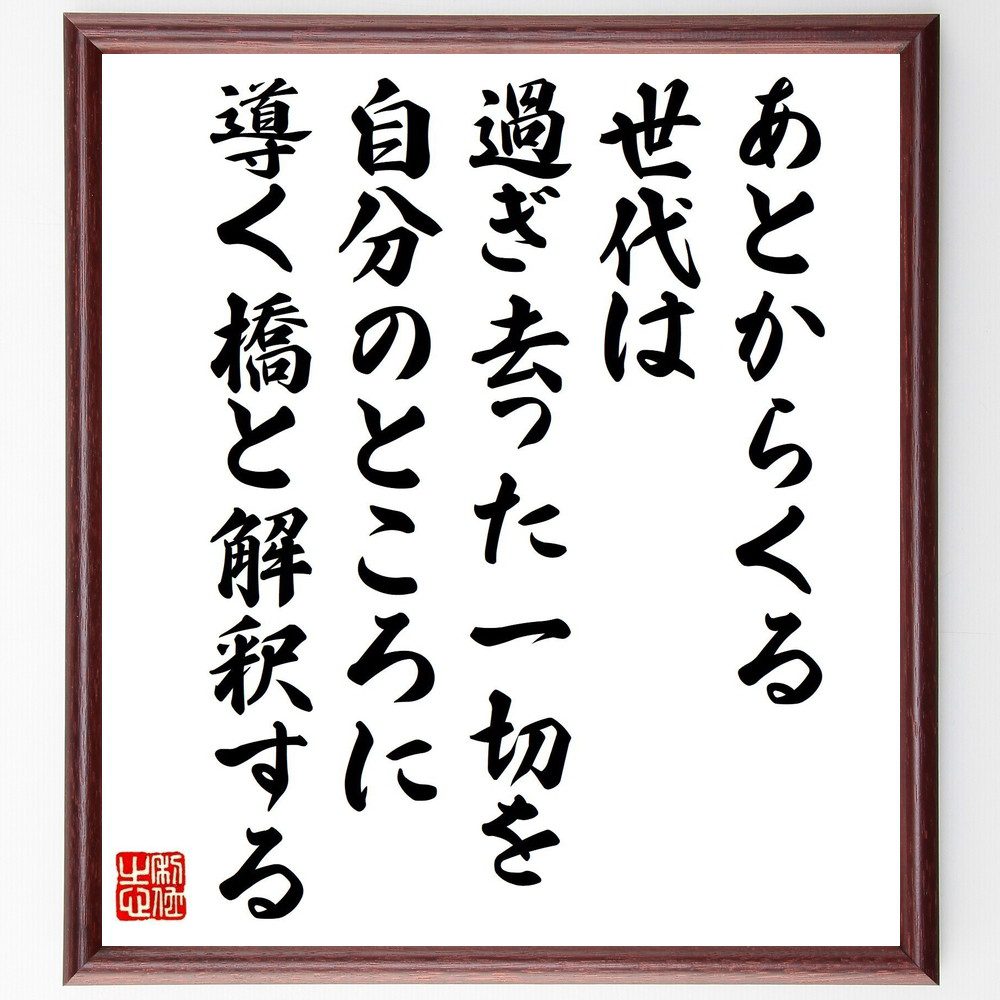 あとからくる
世代は
過ぎ去った一切を
自分のところに
導く橋と解釈する